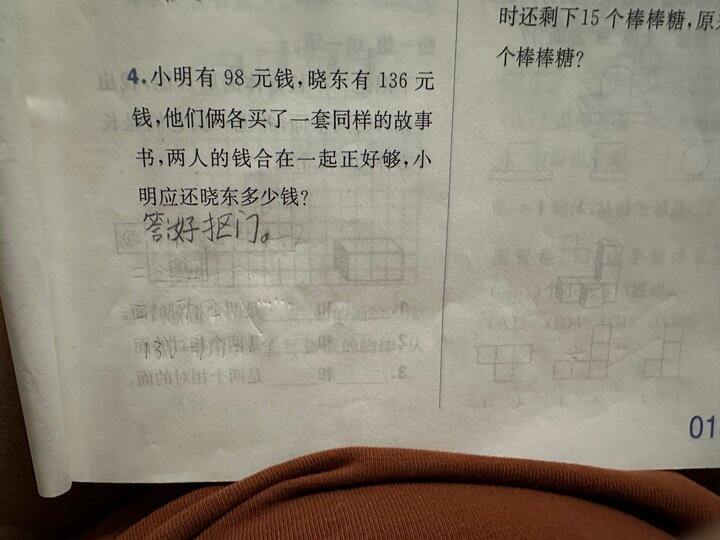 4.小明有 98 元钱,晓东有 136 元
钱,他们俩各买了一套同样的故事
书,两人的钱合在一起正好够,小
明应还晓东多少钱?
答:好抠门。
时还剩下15个棒棒糖,原
个棒棒糖?
01